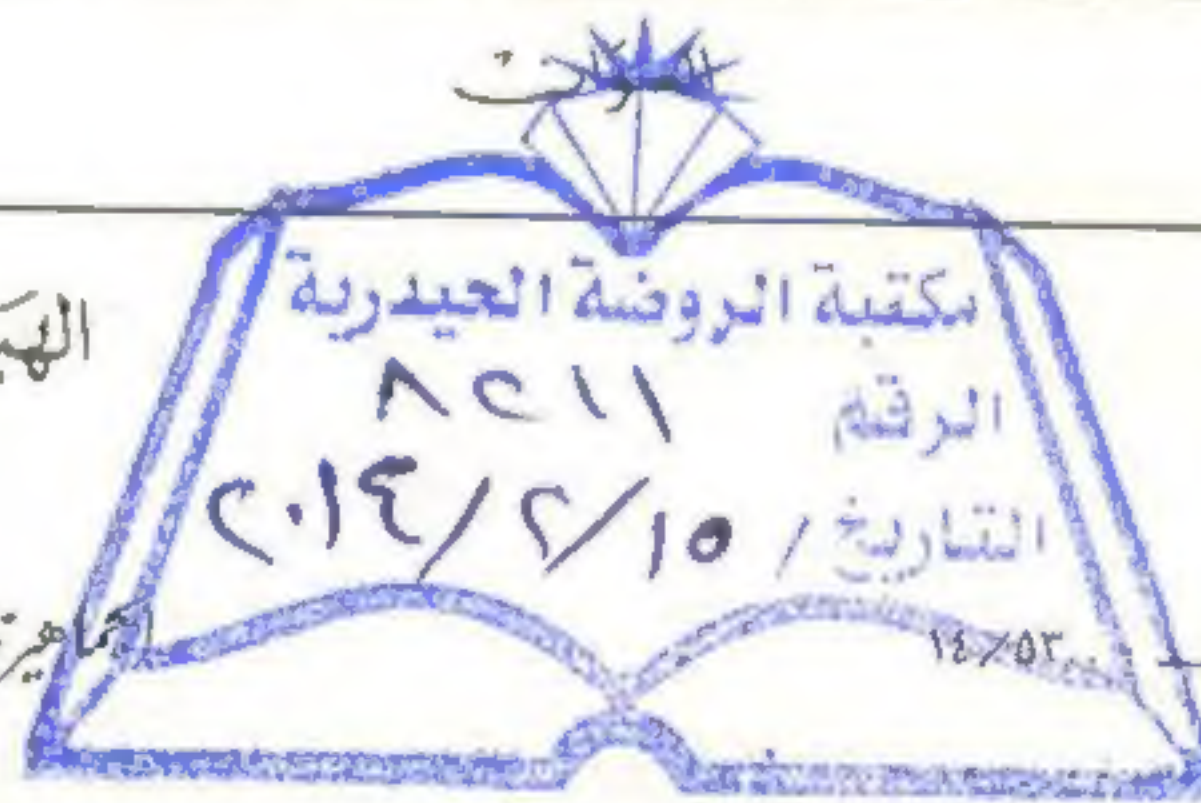 مكتبة الروضة الحيدرية
الرقم ٨٢١١
التاريخ / ١٥/٢/٢٠١٤
١٤/٥٣